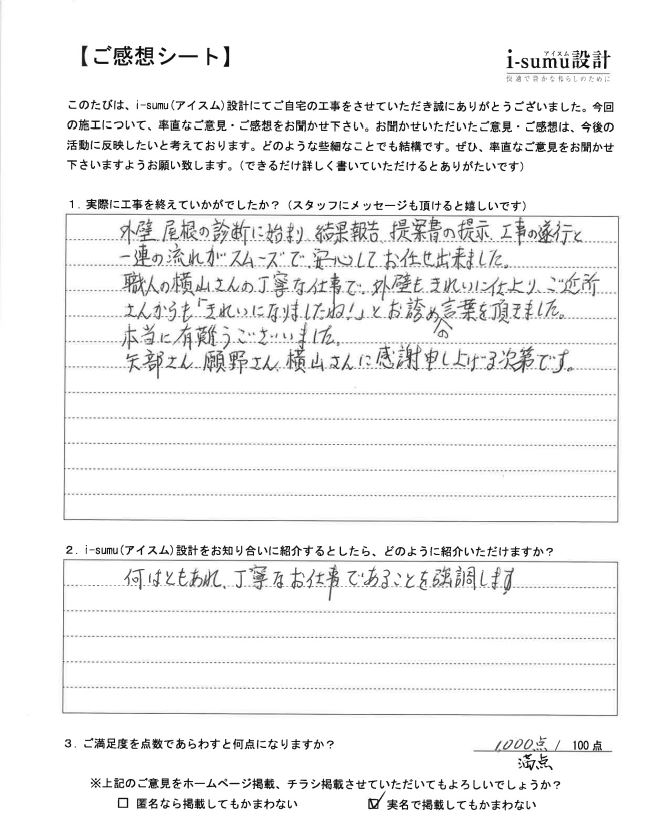 【ご感想シート】
アイスム
i-sumu設計
快適で豊かな暮らしのために
このたびは、i-sumu(アイスム)設計にてご自宅の工事をさせていただき誠にありがとうございました。今回
の施工について、率直なご意見・ご感想をお聞かせ下さい。お聞かせいただいたご意見・ご感想は、今後の
活動に反映したいと考えております。どのような些細なことでも結構です。ぜひ、率直なご意見をお聞かせ
下さいますようお願い致します。(できるだけ詳しく書いていただけるとありがたいです)
1. 実際に工事を終えていかがでしたか?(スタッフにメッセージも頂けると嬉しいです)
外壁、屋根の診断に始まり、結果報告、提案書の提示、工事の遂行と
一連の流れがスムーズで、安心してお任せ出来ました。
職人の横山さんの丁寧な仕事で、外壁もきれいに仕上り、ご近所
さんからも「きれいになりましたね!」とお誉めの言葉を頂きました。
本当に有難うございました。
矢部さん、願野さん、横山さんに感謝申し上げる次第です。
2. i-sumu(アイスム)設計をお知り合いに紹介するとしたら、どのように紹介いただけますか?
何はともあれ、丁寧なお仕事であることを強調します
3. ご満足度を点数であらわすと何点になりますか?
1,000点 / 100点
満点
※上記のご意見をホームページ掲載、チラシ掲載させていただいてもよろしいでしょうか?
□ 匿名なら掲載してもかまわない ☑ 実名で掲載してもかまわない